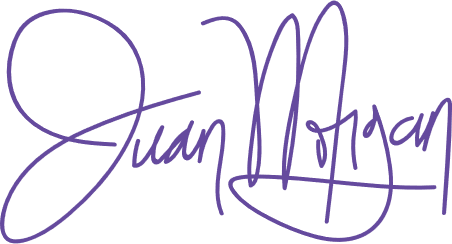 Juan Morgan